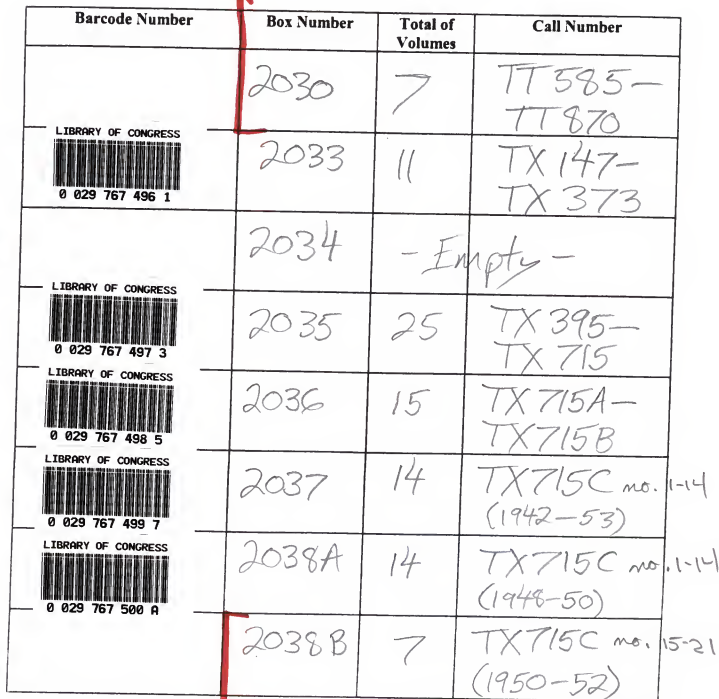 Barcode Number Box Number Total of Volumes Call Number
2030 7 TT 585-
TT 870
LIBRARY OF CONGRESS
0 029 767 496 1
2033 11 TX 147-
TX 373
2034 - Empty -
LIBRARY OF CONGRESS
0 029 767 497 3
2035 25 TX 395-
TX 715
LIBRARY OF CONGRESS
0 029 767 498 5
2036 15 TX 715A-
TX715B
LIBRARY OF CONGRESS
0 029 767 499 7
2037 14 TX715C no. 1-14
(1942-53)
LIBRARY OF CONGRESS
0 029 767 500 A
2038A 14 TX715C no. 1-14
(1948-50)
2038B 7 TX715C no. 15-21
(1950-52)